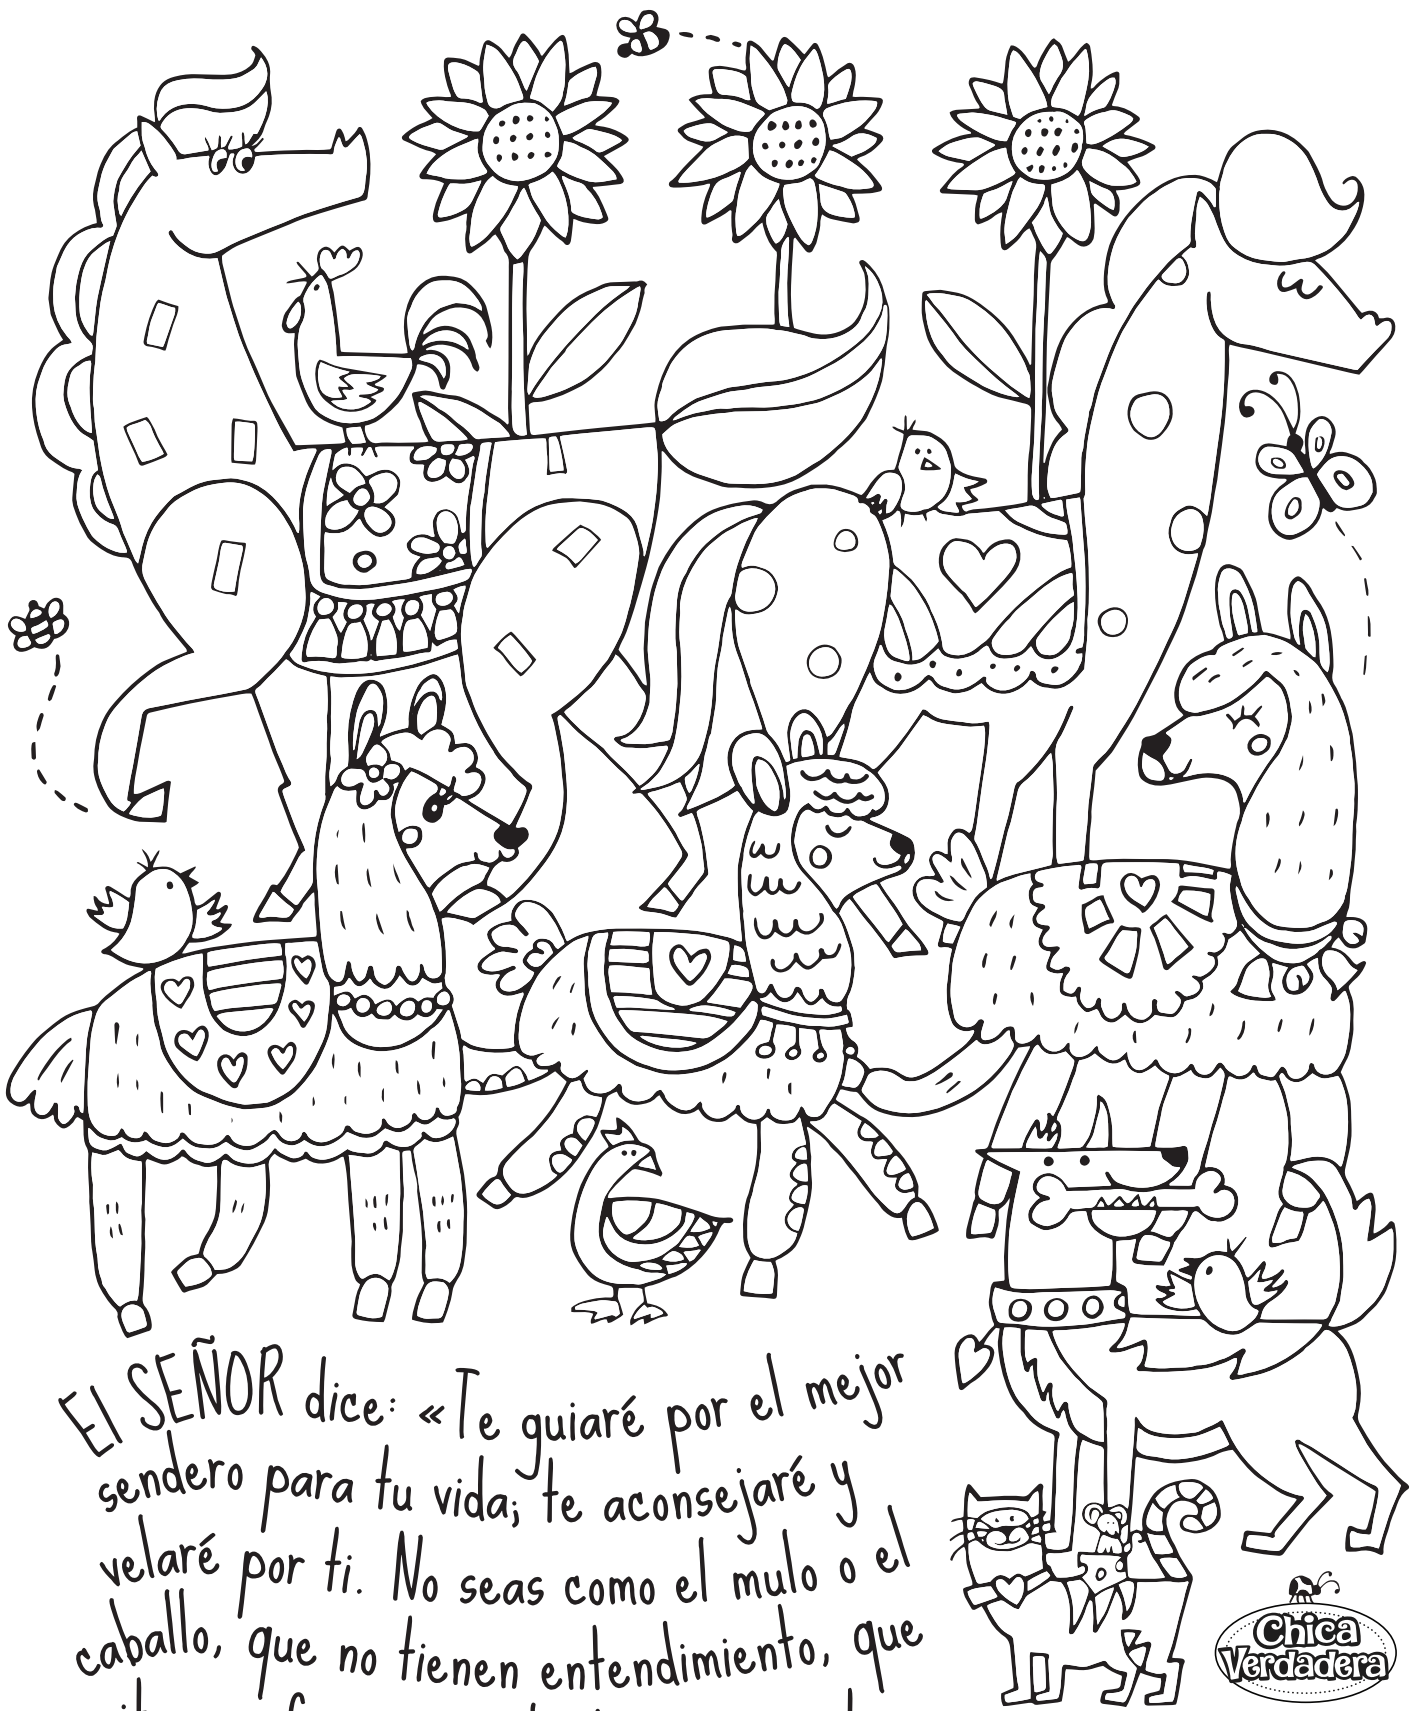 El SEÑOR dice: «Te guiaré por el mejor
sendero para tu vida; te aconsejaré y
velaré por ti. No seas como el mulo o el
caballo, que no tienen entendimiento, que
Chica
Verdadera